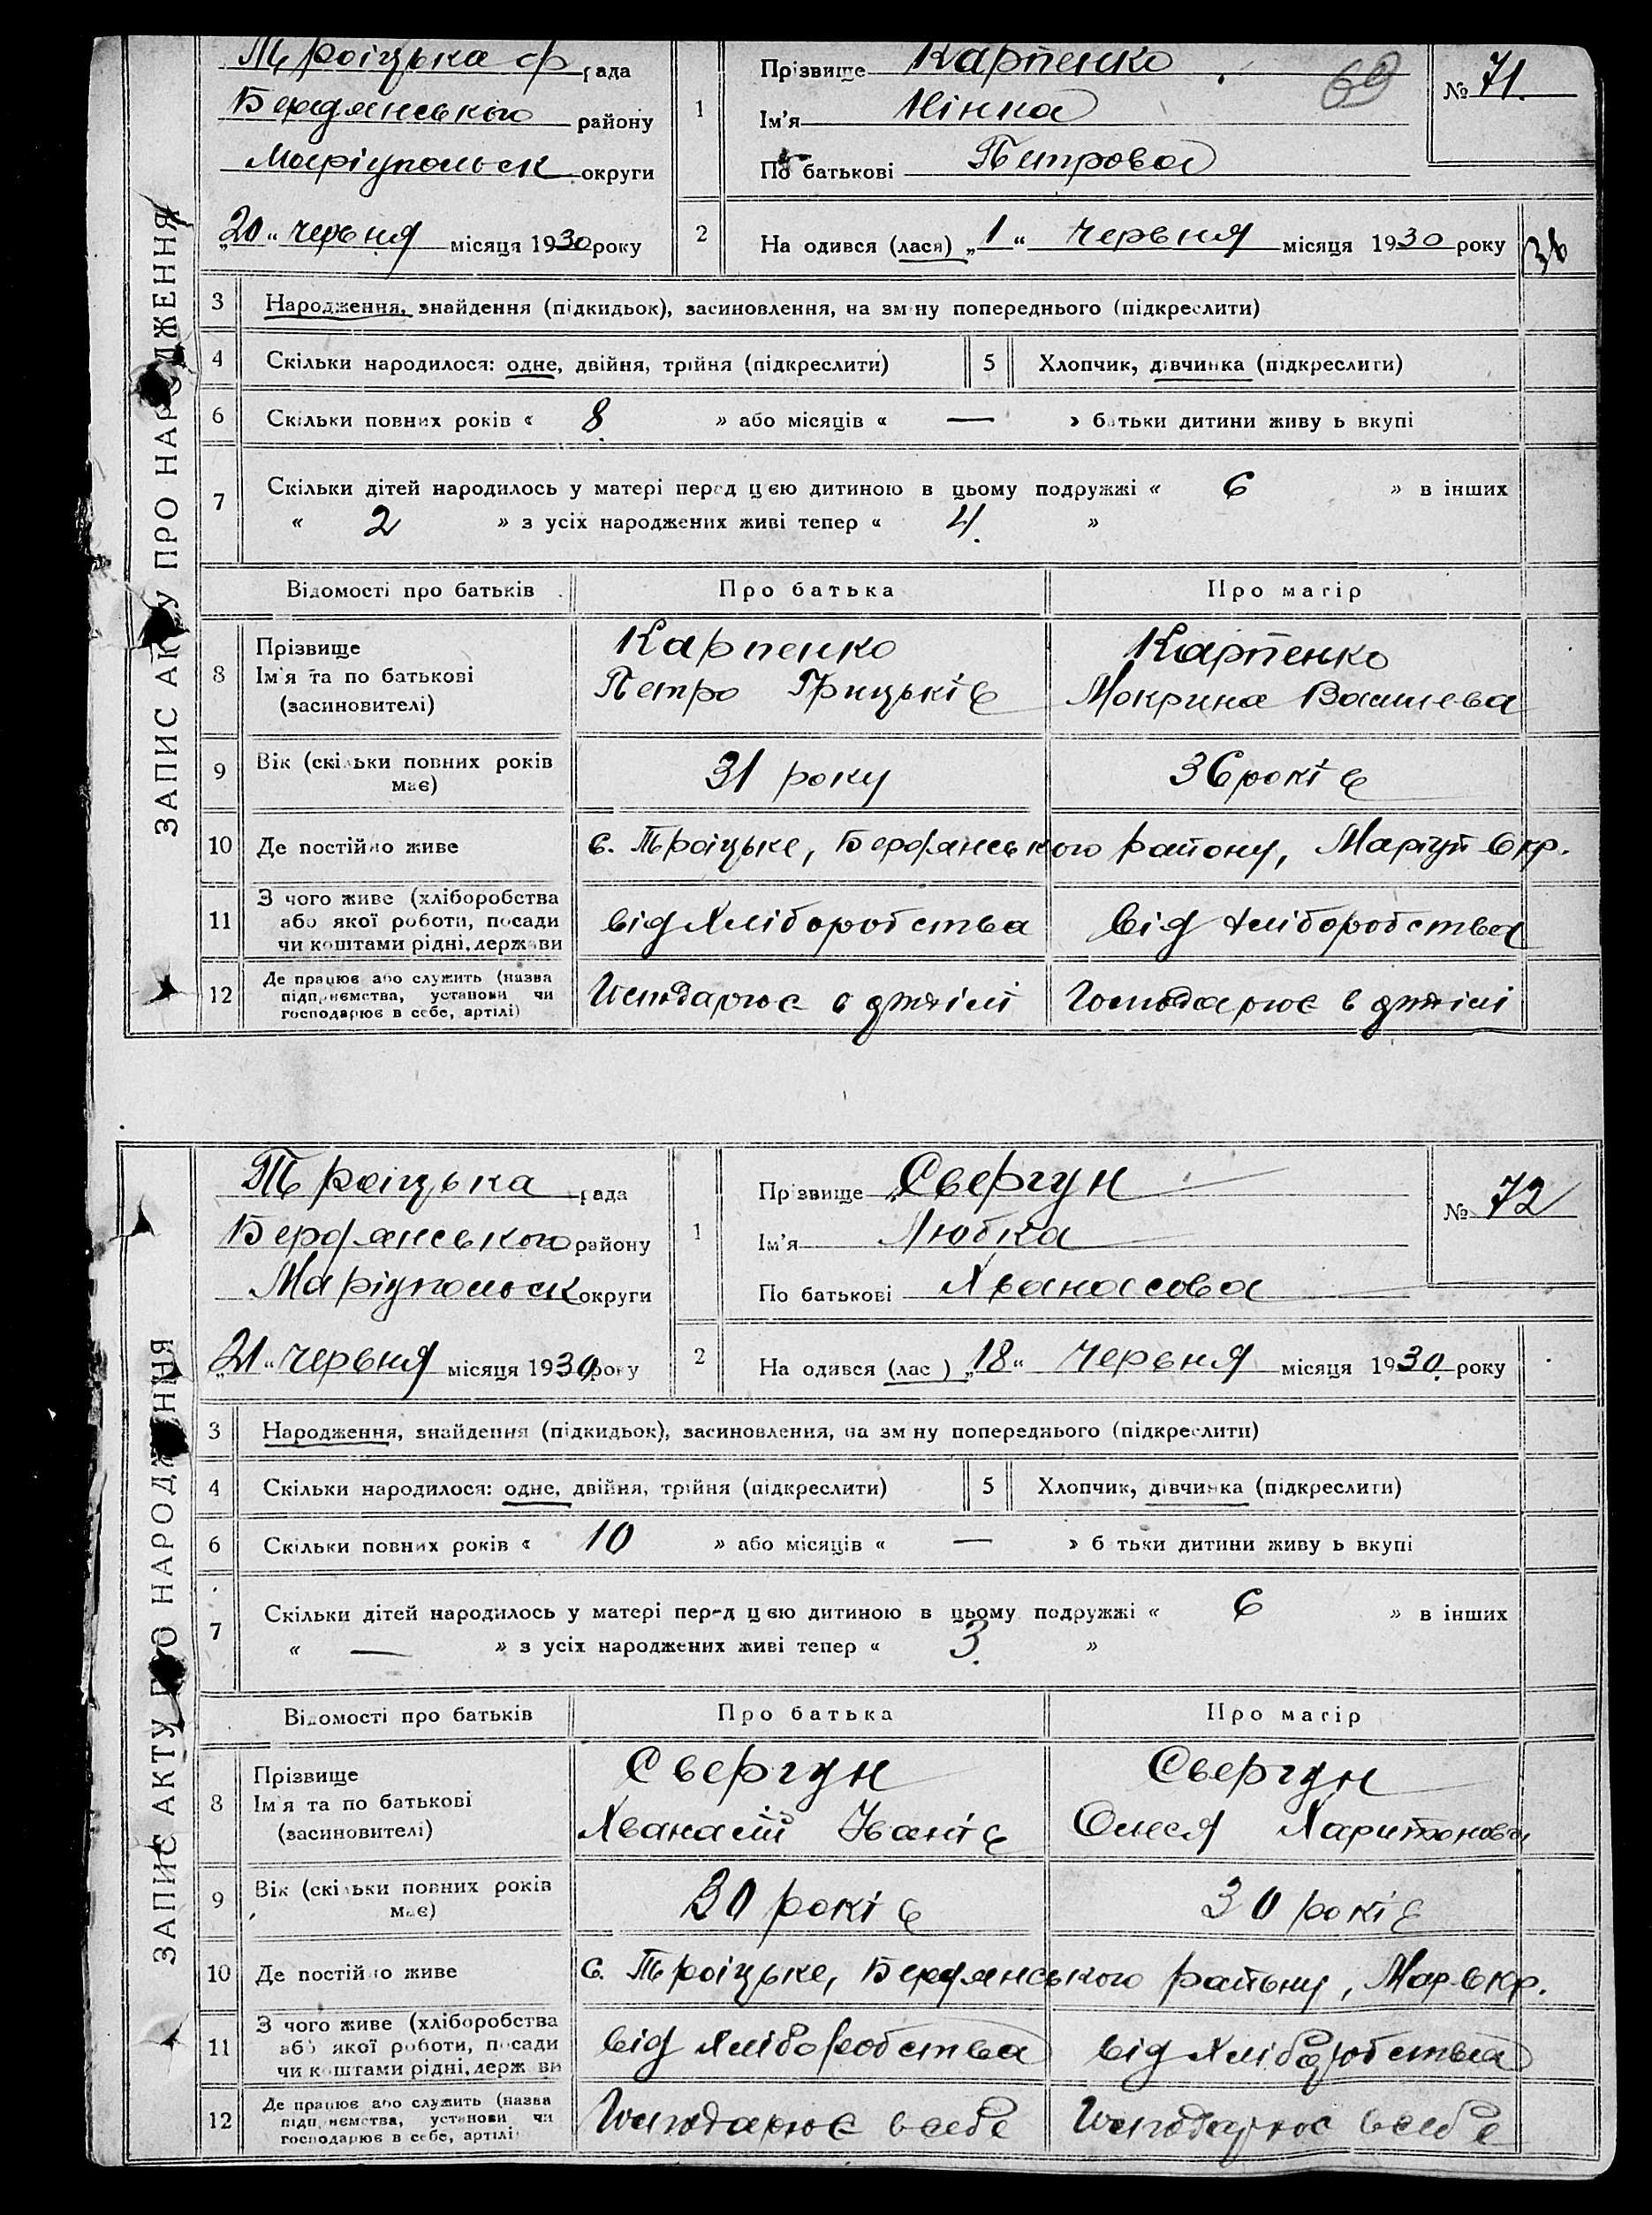 ЗАПИС АКТУ ПРО НАРОДЖЕННЯ
Троіцька ср рада
Бердянського району
Маріупольськ округи
„20“ червня місяця 1930 року
1
Прізвище Карпенко
69
Ім'я Нінка
По батькові Петрова
№ 71.
2
На одився (лася) „1“ червня місяця 1930 року
3
Народження, знайдення (підкидьок), засиновлення, на зм ну попереднього (підкреслити)
4
Скільки народилося: одне, двійня, трійня (підкреслити)
5
Хлопчик, дівчинка (підкреслити)
6
Скільки повних років « 8 » або місяців « — » батьки дитини живу ь вкупі
7
Скільки дітей народилось у матері перед цією дитиною в цьому подружжі « 6 » в інших
« 2 » з усіх народжених живі тепер « 4. »
Відомості про батьків
Про батька
Про матір
8
Прізвище
Ім'я та по батькові
(засиновителі)
Карпенко
Петро Грицьків
Карпенко
Мокрина Василева
9
Вік (скільки повних років
має)
31 року
36 років
10
Де постійно живе
с. Троіцьке, Бердянського району, Маріуп Окр.
11
З чого живе (хліборобства
або якої роботи, посади
чи коштами рідні, держави
від хліборобства
від хліборобства
12
Де працює або служить (назва
підприємства, установи чи
господарює в себе, артілі)
Господарює в артілі
Господарює в артілі
ЗАПИС АКТУ ПРО НАРОДЖЕННЯ
Троіцька рада
Бердянського району
Маріупольськ округи
„21“ червня місяця 1930 року
1
Пр звище Свергун
Ім'я Любка
По батькові Хванасова
№ 72
2
На одився (лас ) „18“ червня місяця 1930. року
3
Народження, знайдення (підкидьок), засиновлення, на зм ну попереднього (підкреслити)
4
Скільки народилося: одне, двійня, трійня (підкреслити)
5
Хлопчик, дівчинка (підкреслити)
6
Скільки повних років « 10 » або місяців « — » б тьки дитини живу ь вкупі
7
Скільки дітей народилось у матері перед цією дитиною в цьому подружжі « 6 » в інших
« — » з усіх народжених живі тепер « 3. »
Відомості про батьків
Про батька
Про матір
8
Прізвище
Ім'я та по батькові
(засиновителі)
Свергун
Хванасій Іванів
Свергун
Олеся Харитонова
9
Вік (скільки повних років
має)
30 років
30 років
10
Де постійно живе
с. Троіцьке, Бердянського району, Мар-Окр.
11
З чого живе (хліборобства
або якої роботи, посади
чи коштами рідні, держ ви
від хліборобства
від хліборобства
12
Де працює або служить (назва
підприємства, установи чи
господарює в себе, артілі)
Господарює в себе
Господарює в себе